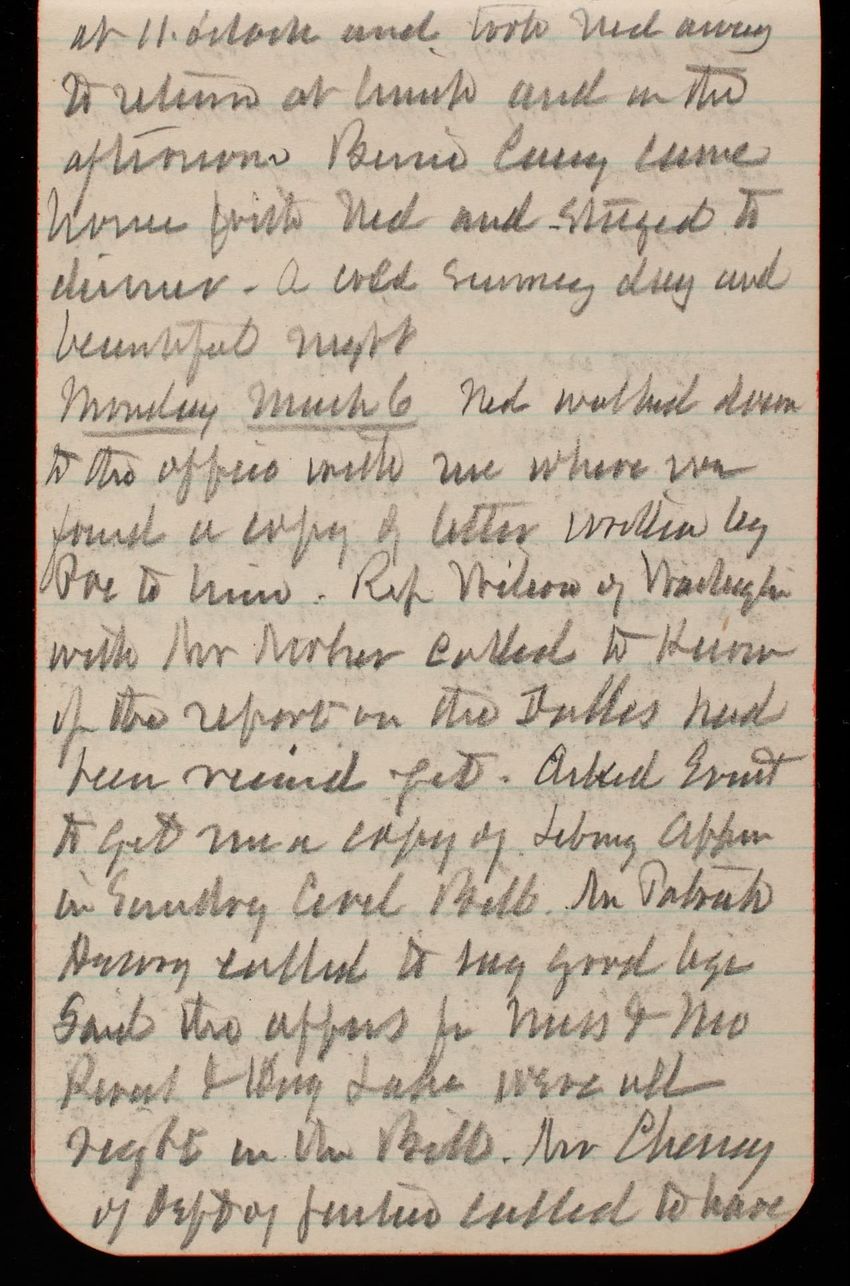 at 11. o'clock and took Ned away
to return at lunch and in the
afternoon Bernie Casey came
home with Ned and stayed to
dinner - A cold sunny day and
beautiful night
Monday March 6 Ned walked down
to the office with me where we
found a copy of letter written by
Poe to him. Rep Wilson of Washington
with Mr called to Know
if the report on the Dalles had
been received yet. Asked Ernst
to get me a copy of Library Appn
in Sundry Civil Bill. Mr Patrick
called to say good bye
Said the appns for Miss & Mo
Rivers & Lake were all
right in the Bill. Mr Cheney
of Dept of Justice called to have